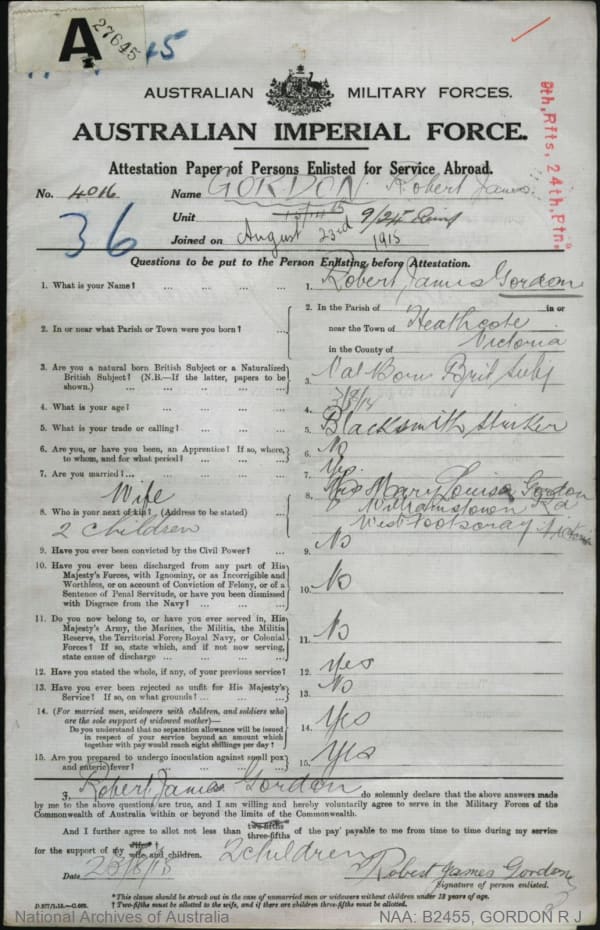 A 27645
AUSTRALIAN MILITARY FORCES.
AUSTRALIAN IMPERIAL FORCE.
9th, Rfts, 24th, Btn.
Attestation Paper of Persons Enlisted for Service Abroad.
No. 4016 Name GORDON Robert James.
36
Unit 9/24
Joined on August 23rd 1915
Questions to be put to the Person Enlisting before Attestation.
1. What is your Name? ... 1. Robert James Gordon
2. In or near what Parish or Town were you born? ... 2. In the Parish of in or
near the Town of Heathcote
in the County of Victoria
3. Are you a natural born British Subject or a Naturalized
British Subject? (N.B.—If the latter, papers to be
shown.) ... 3. Nat Born Brit Subj
4. What is your age? ... 4.
5. What is your trade or calling? ... 5. Blacksmith Striker
6. Are you, or have you been, an Apprentice? If so, where,
to whom, and for what period? ... 6. No
7. Are you married? ... 7. Yes.
Wife
8. Who is your next of kin? (Address to be stated) ... 8. Mrs Mary Louisa Gordon
2 children
Williamstown Rd
West Footscray Victoria
9. Have you ever been convicted by the Civil Power? ... 9. No
10. Have you ever been discharged from any part of His
Majesty's Forces, with Ignominy, or as Incorrigible and
Worthless, or on account of Conviction of Felony, or of a
Sentence of Penal Servitude, or have you been dismissed
with Disgrace from the Navy? ... 10. No
11. Do you now belong to, or have you ever served in, His
Majesty's Army, the Marines, the Militia, the Militia
Reserve, the Territorial Force, Royal Navy, or Colonial
Forces? If so, state which, and if not now serving,
state cause of discharge ... 11. No
12. Have you stated the whole, if any, of your previous service? 12. Yes
13. Have you ever been rejected as unfit for His Majesty's
Service? If so, on what grounds? ... 13. No
14. (For married men, widowers with children, and soldiers who
are the sole support of widowed mother)—
Do you understand that no separation allowance will be issued
in respect of your service beyond an amount which
together with pay would reach eight shillings per day? 14. Yes
15. Are you prepared to undergo inoculation against small pox
and enteric fever? 15. Yes
I, Robert James Gordon do solemnly declare that the above answers made
by me to the above questions are true, and I am willing and hereby voluntarily agree to serve in the Military Forces of the
Commonwealth of Australia within or beyond the limits of the Commonwealth.
And I further agree to allot not less than two-fifths three-fifths of the pay payable to me from time to time during my service
for the support of my wife wife and children. 2 children
Date 23/8/15 Robert James Gordon
Signature of person enlisted.
D.877/1.15.—C.
*This clause should be struck out in the case of unmarried men or widowers without children under 18 years of age.
† Two-fifths must be allotted to the wife, and if there are children three-fifths must be allotted.
National Archives of Australia NAA: B2455, GORDON R J